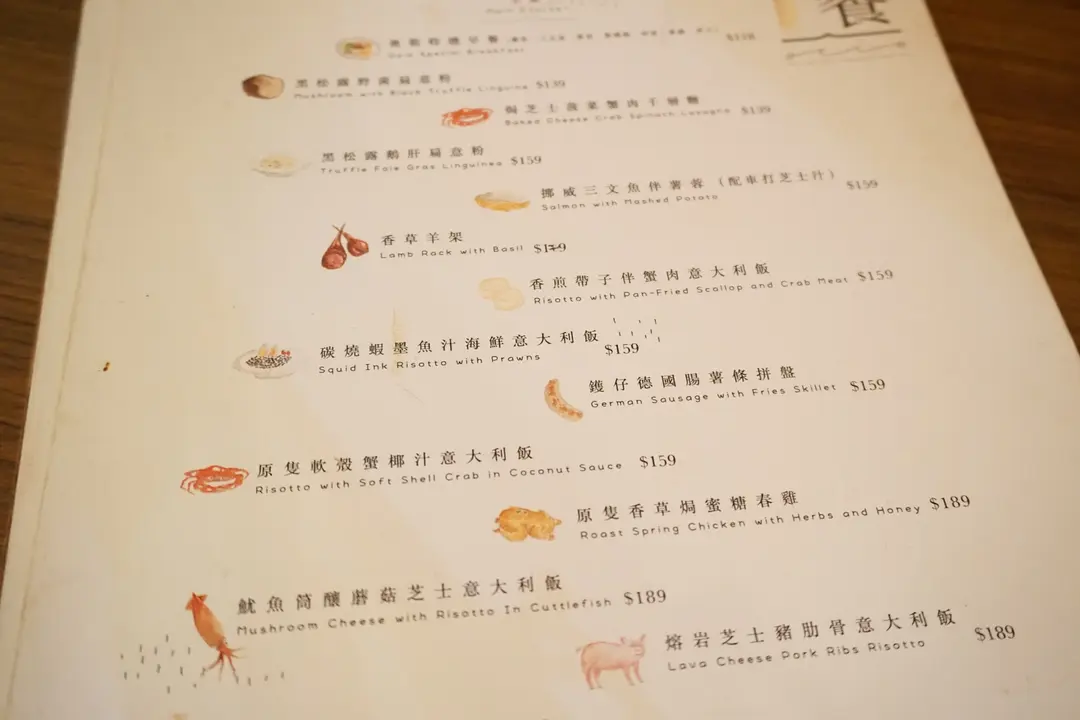 餐
$139
黑松露野菌扁意粉
Mushroom with Black Truffle Linguine $139
焗芝士菠菜蟹肉千層麵
Baked Cheese Crab Spinach Lasagna $139
黑松露鵝肝扁意粉
Truffle Foie Gras Linguinea $159
挪威三文魚伴薯蓉（配車打芝士汁） $159
Salmon with Mashed Potato
香草羊架
Lamb Rack with Basil $179
香煎帶子伴蟹肉意大利飯
Risotto with Pan-Fried Scallop and Crab Meat $159
碳燒蝦墨魚汁海鮮意大利飯
Squid Ink Risotto with Prawns $159
鑊仔德國腸薯條拼盤
German Sausage with Fries Skillet $159
原隻軟殼蟹椰汁意大利飯
Risotto with Soft Shell Crab in Coconut Sauce $159
原隻香草焗蜜糖春雞
Roast Spring Chicken with Herbs and Honey $189
魷魚筒釀蘑菇芝士意大利飯
Mushroom Cheese with Risotto In Cuttlefish $189
熔岩芝士豬肋骨意大利飯
Lava Cheese Pork Ribs Risotto $189